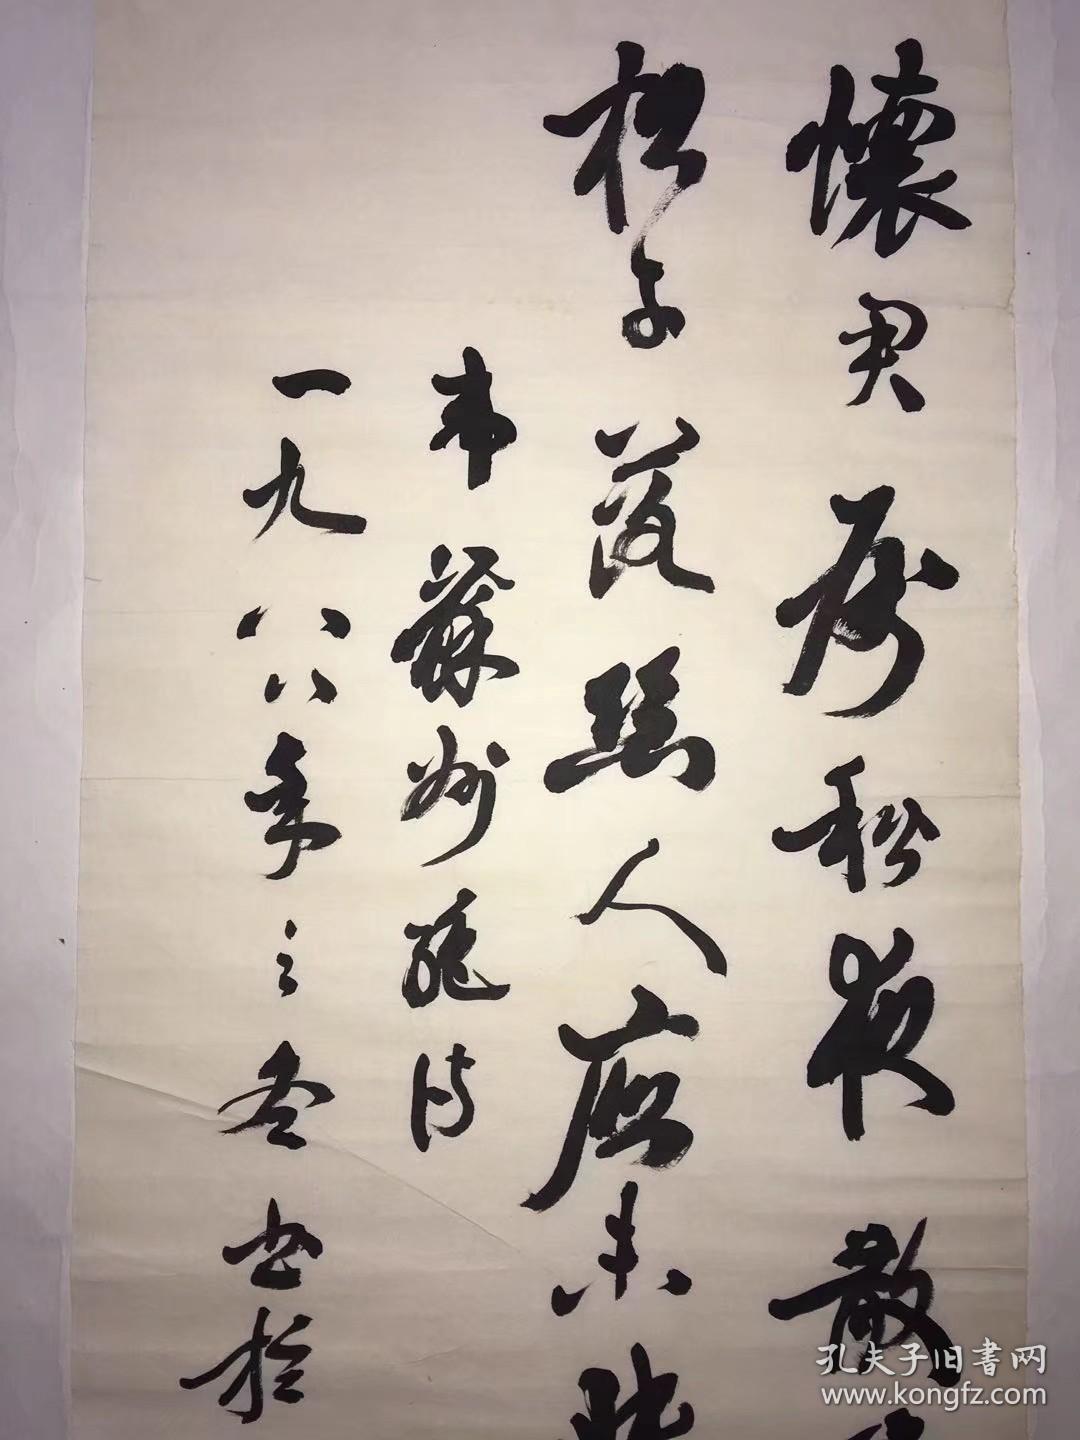 懷君屬秋夜散
松子落幽人應未眠
韋蘇州
一九八八年之冬書於
孔夫子旧書网
www.kongfz.com